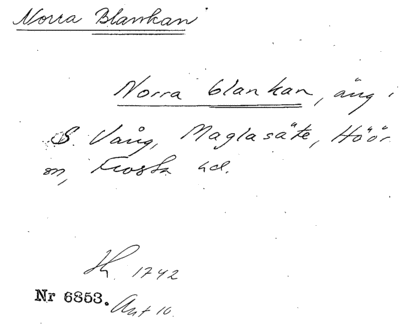 Norra Blankan
Norra blankan, äng i
S. Vång, Maglasäte, Höör
sn, Frosta hd.
Sk. 1742
Nr 6853. Akt 10.